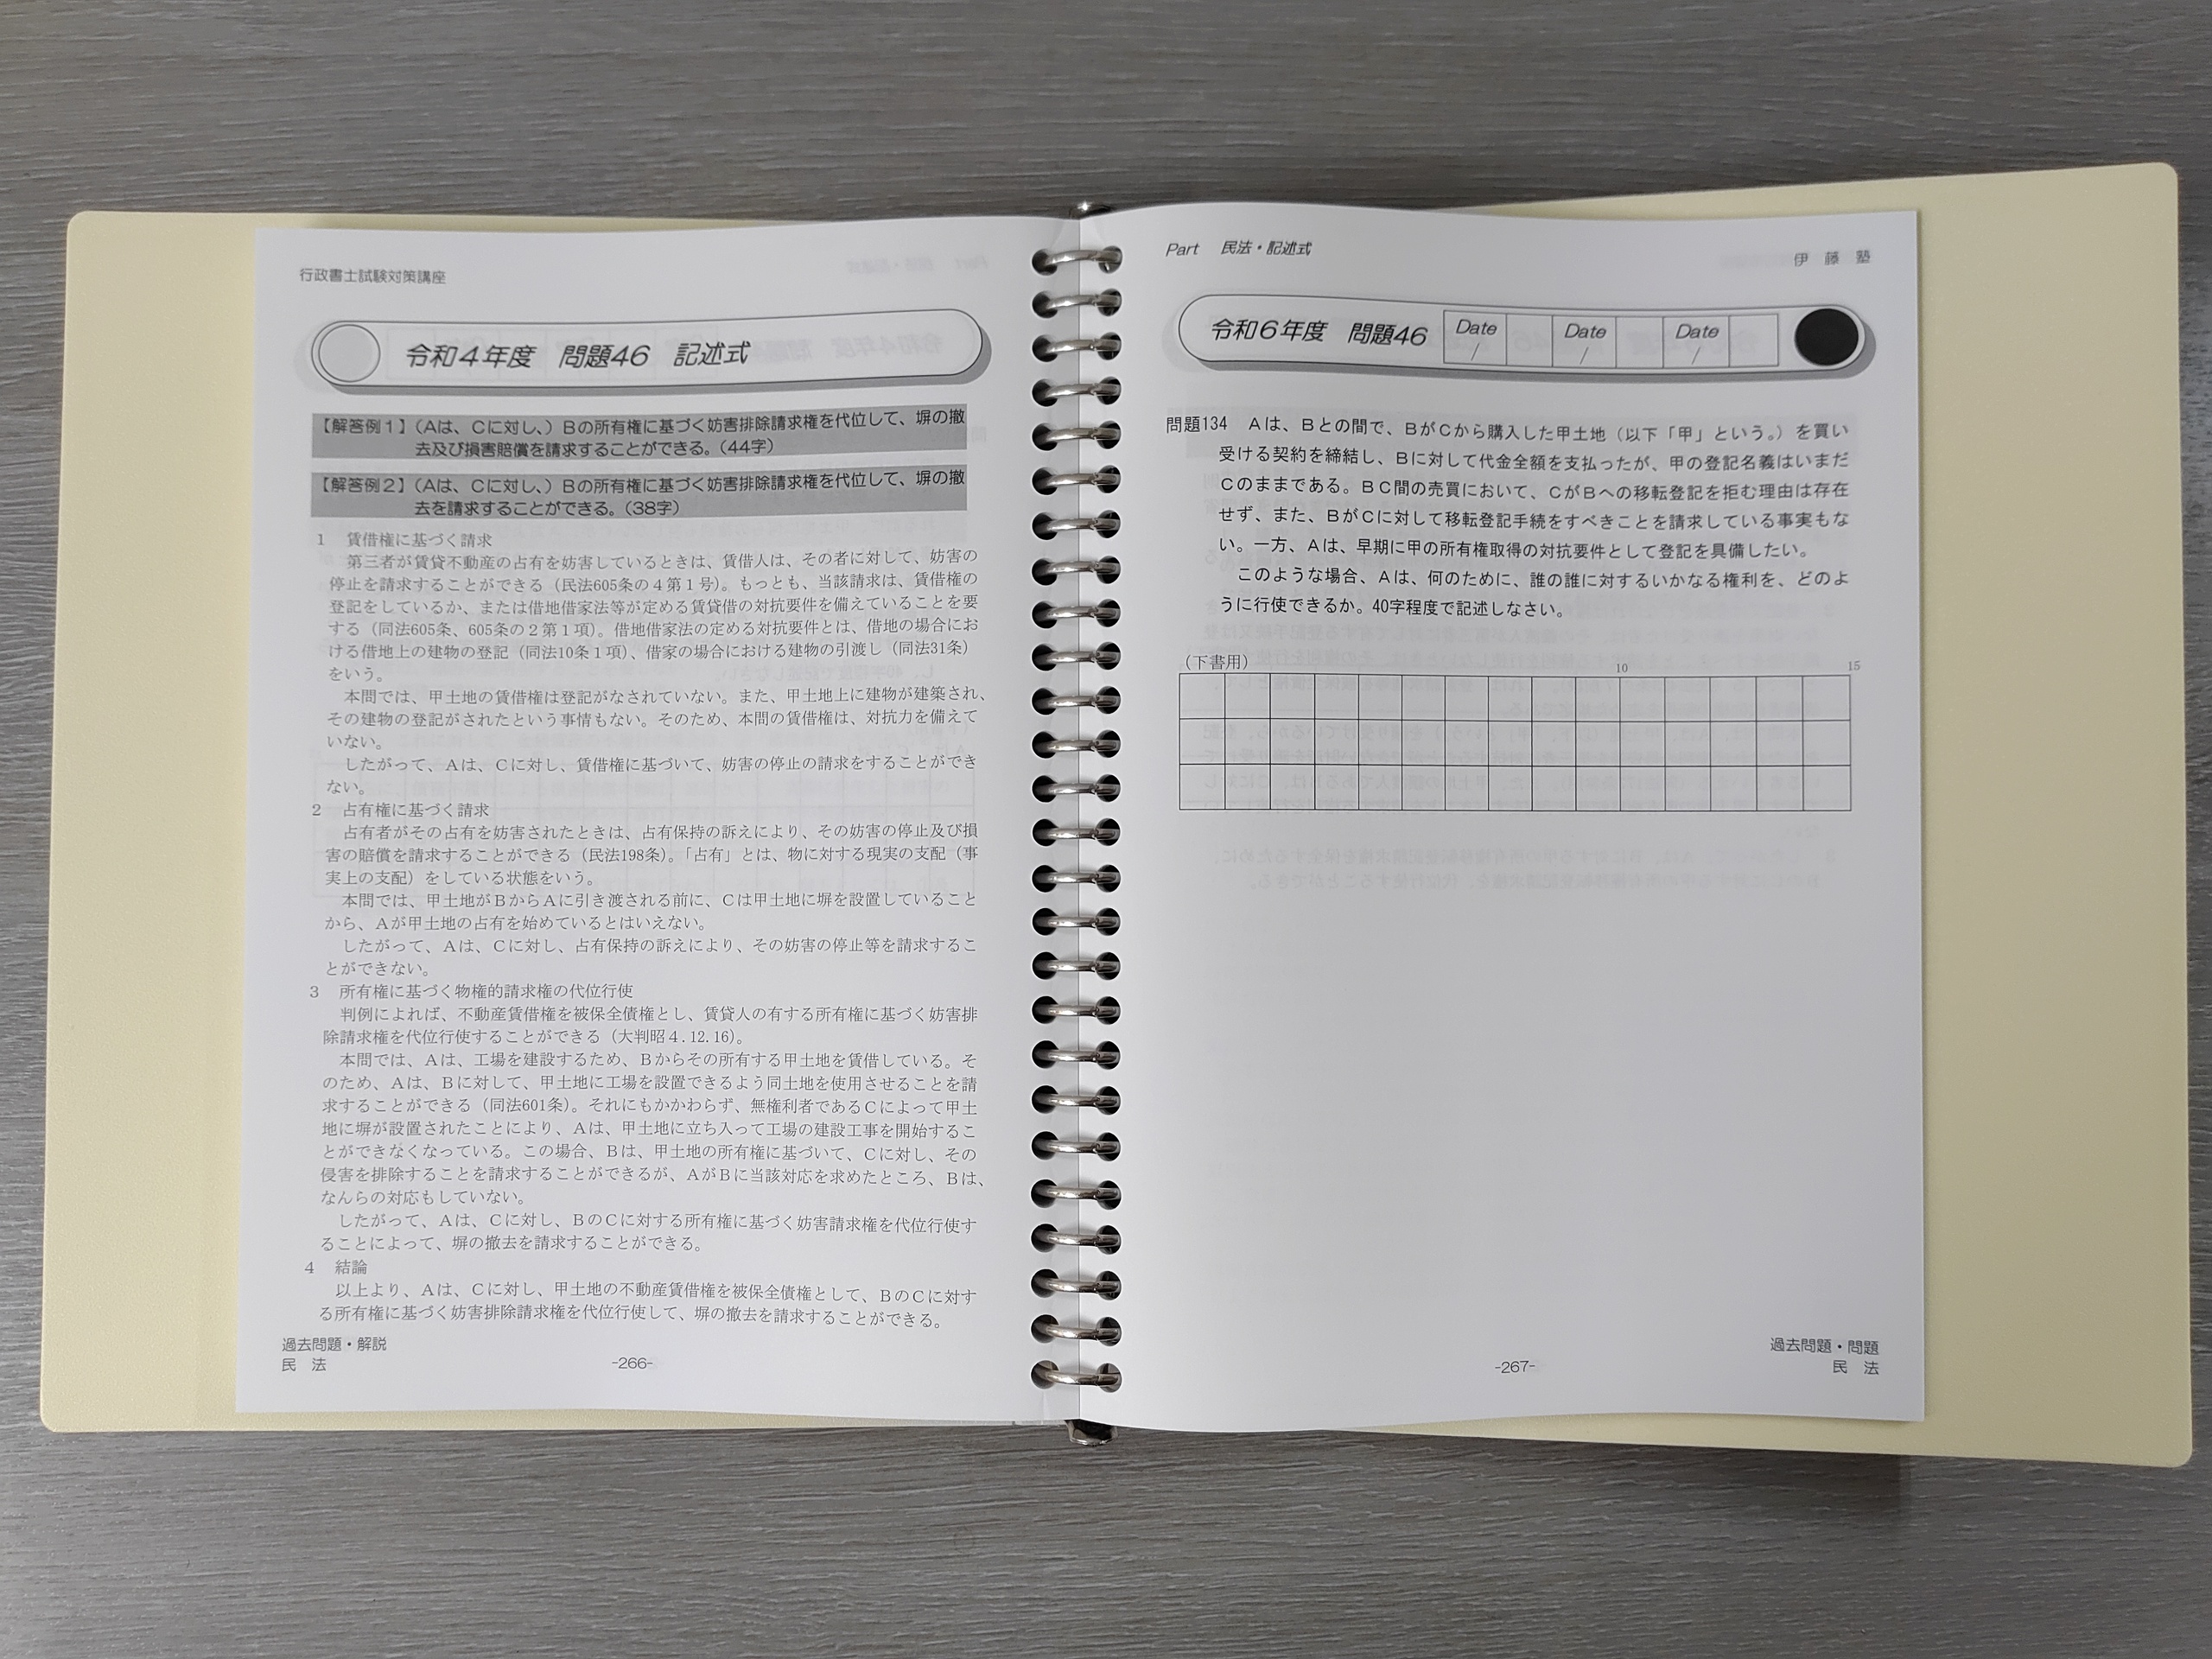 行政書士試験対策講座
令和4年度 問題46 記述式
【解答例1】(Aは、Cに対し、)Bの所有権に基づく妨害排除請求権を代位して、塀の撤
去及び損害賠償を請求することができる。(44字)
【解答例2】(Aは、Cに対し、)Bの所有権に基づく妨害排除請求権を代位して、塀の撤
去を請求することができる。(38字)
1 賃借権に基づく請求
第三者が賃貸不動産の占有を妨害しているときは、賃借人は、その者に対して、妨害の
停止を請求することができる(民法605条の4第1号)。もっとも、当該請求は、賃借権の
登記をしているか、または借地借家法等が定める賃貸借の対抗要件を備えていることを要
する(同法605条、605条の2第1項)。借地借家法の定める対抗要件とは、借地の場合にお
ける借地上の建物の登記(同法10条1項)、借家の場合における建物の引渡し(同法31条)
をいう。
本問では、甲土地の賃借権は登記がなされていない。また、甲土地上に建物が建築され、
その建物の登記がされたという事情もない。そのため、本問の賃借権は、対抗力を備えて
いない。
したがって、Aは、Cに対し、賃借権に基づいて、妨害の停止の請求をすることができ
ない。
2 占有権に基づく請求
占有者がその占有を妨害されたときは、占有保持の訴えにより、その妨害の停止及び損
害の賠償を請求することができる(民法198条)。「占有」とは、物に対する現実の支配(事
実上の支配)をしている状態をいう。
本問では、甲土地がBからAに引き渡される前に、Cは甲土地に塀を設置していること
から、Aが甲土地の占有を始めているとはいえない。
したがって、Aは、Cに対し、占有保持の訴えにより、その妨害の停止等を請求するこ
とができない。
3 所有権に基づく物権的請求権の代位行使
判例によれば、不動産賃借権を被保全債権とし、賃貸人の有する所有権に基づく妨害排
除請求権を代位行使することができる(大判昭4.12.16)。
本問では、Aは、工場を建設するため、Bからその所有する甲土地を賃借している。そ
のため、Aは、Bに対して、甲土地に工場を設置できるよう同土地を使用させることを請
求することができる(同法601条)。それにもかかわらず、無権利者であるCによって甲土
地に塀が設置されたことにより、Aは、甲土地に立ち入って工場の建設工事を開始するこ
とができなくなっている。この場合、Bは、甲土地の所有権に基づいて、Cに対し、その
侵害を排除することを請求することができるが、AがBに当該対応を求めたところ、Bは、
なんらの対応もしていない。
したがって、Aは、Cに対し、BのCに対する所有権に基づく妨害請求権を代位行使す
ることによって、塀の撤去を請求することができる。
4 結論
以上より、Aは、Cに対し、甲土地の不動産賃借権を被保全債権として、BのCに対す
る所有権に基づく妨害排除請求権を代位行使して、塀の撤去を請求することができる。
過去問題・解説
民 法
-266-
Part 民法・記述式
伊 藤 塾
令和6年度 問題46 Date / Date / Date /
問題134 Aは、Bとの間で、BがCから購入した甲土地(以下「甲」という。)を買い
受ける契約を締結し、Bに対して代金全額を支払ったが、甲の登記名義はいまだ
Cのままである。BC間の売買において、CがBへの移転登記を拒む理由は存在
せず、また、BがCに対して移転登記手続をすべきことを請求している事実もな
い。一方、Aは、早期に甲の所有権取得の対抗要件として登記を具備したい。
このような場合、Aは、何のために、誰の誰に対するいかなる権利を、どのよ
うに行使できるか。40字程度で記述しなさい。
(下書用)
10 15
過去問題・問題
民 法
-267-